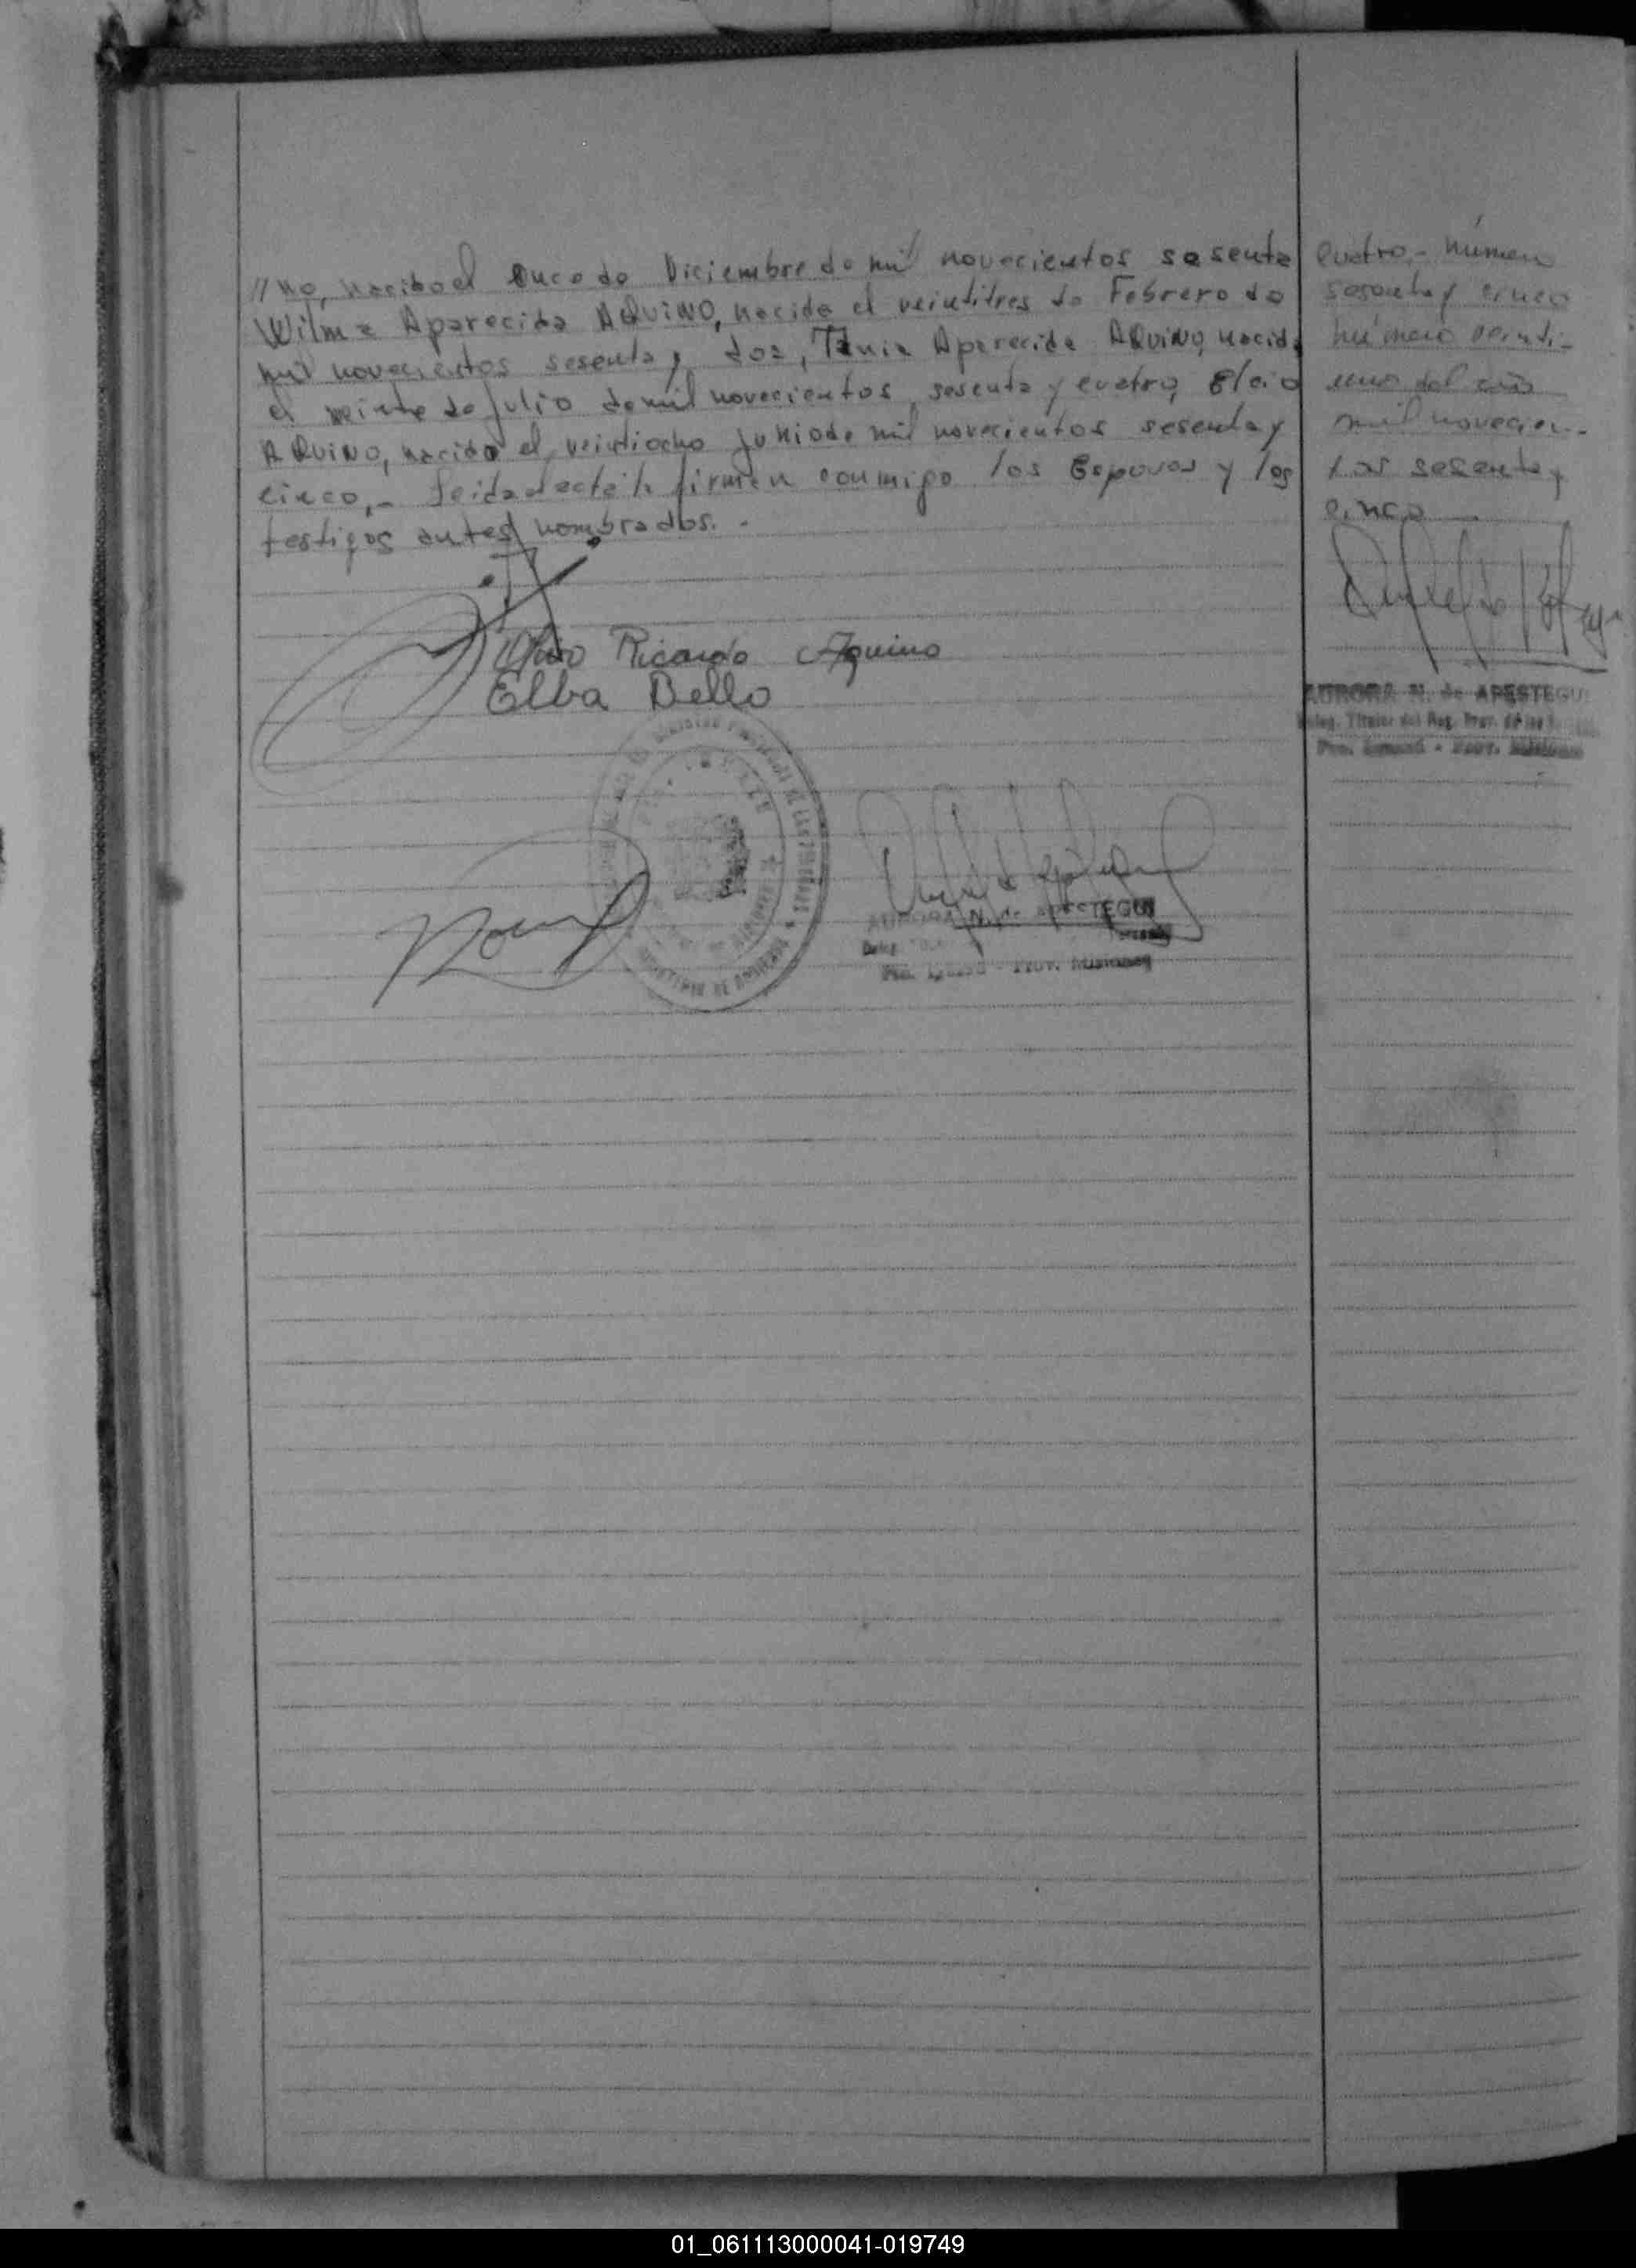 //no, nacido el once de Diciembre de mil novecientos sesenta
Wilma Aparecida AQUINO, nacida el veintitres de Febrero de
mil novecientos sesenta y dos, Tania Aparecida AQUINO, nacida
el veinte de Julio de mil novecientos sesenta y cuatro, Elcio
AQUINO, nacido el veintiocho junio de mil novecientos sesenta y
cinco,- leida el acta la firman conmigo los Esposos y los
testigos antes nombrados.-
Ricardo Aquino
Elba Bello
AURORA N. de APESTEGUI
Deleg.
Pto. Iguazú - Prov. Misiones
cuatro,- número
sesenta y cinco
número veinti-
uno del año
mil novecien-
tos sesenta y
cinco
AURORA N. de APESTEGUI
Deleg. Titular del Reg. Prov. de las
Pto. Iguazú - Prov. Misiones
01_061113000041-019749